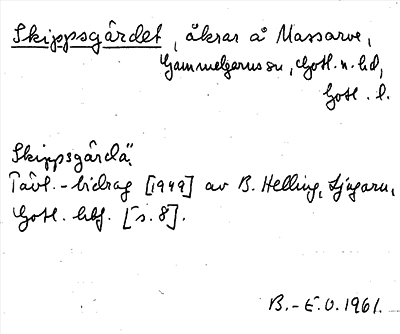 Skippsgårdet, åkrar å Massarve,
Gammelgarns sn, Gotl. n. hd,
Gotl. l.
Skippsgårdä.
Tävl.-bidrag [1949] av B. Helling, Ljugarn,
Gotl. hbf. [s. 8].
B.-E.O. 1961.